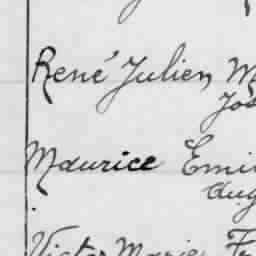 René Julien M
Jos
Maurice Emi
Aug
Victor Marie Fr